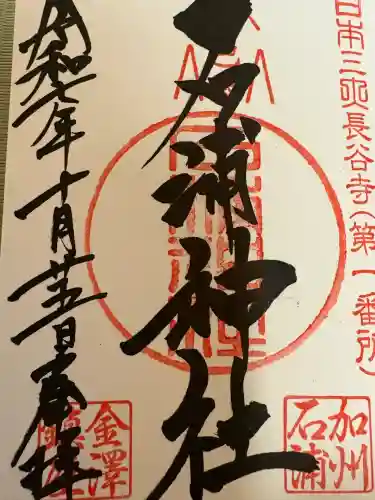 日本三大長谷寺(第一番所)
石浦神社
加州
石浦
令和七年十月廿五日奉拝
金澤